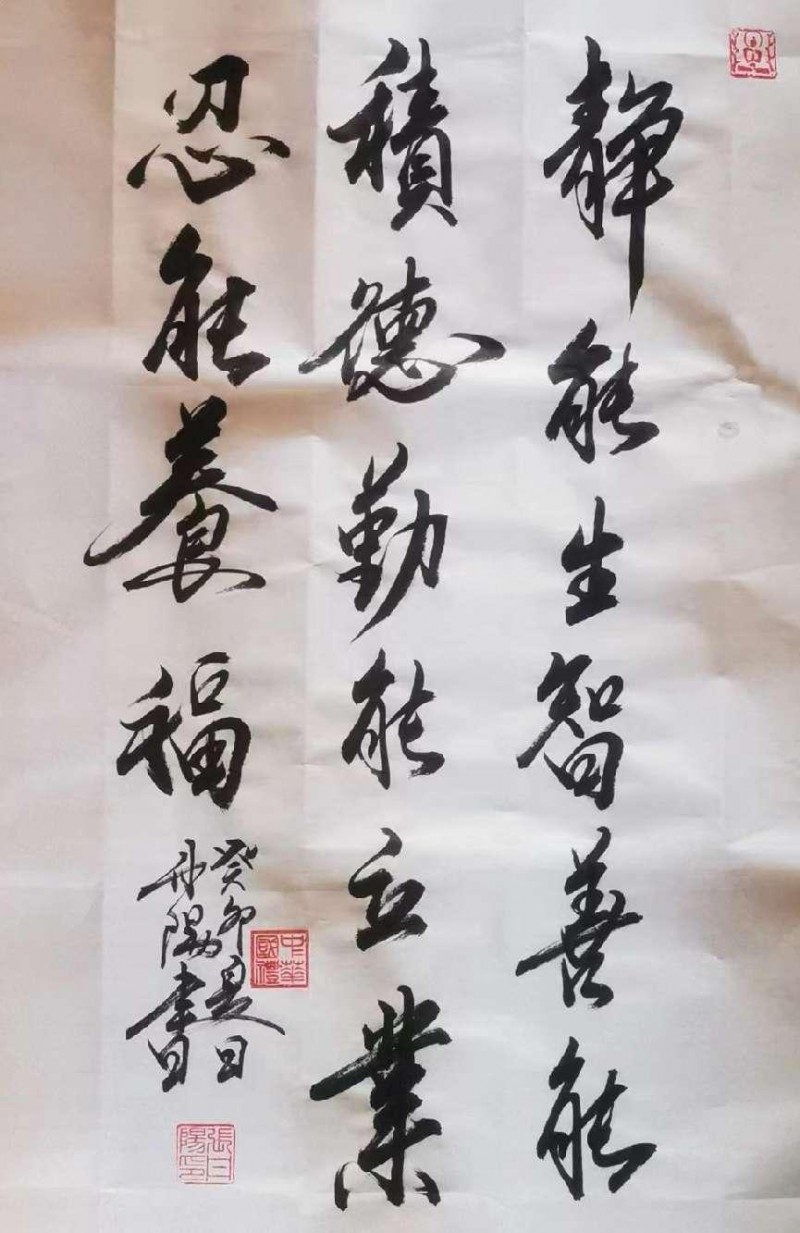 靜能生智善能
積德勤能立業
忍能養福
癸卯夏日
丹陽書
中華國禮
張日陽印